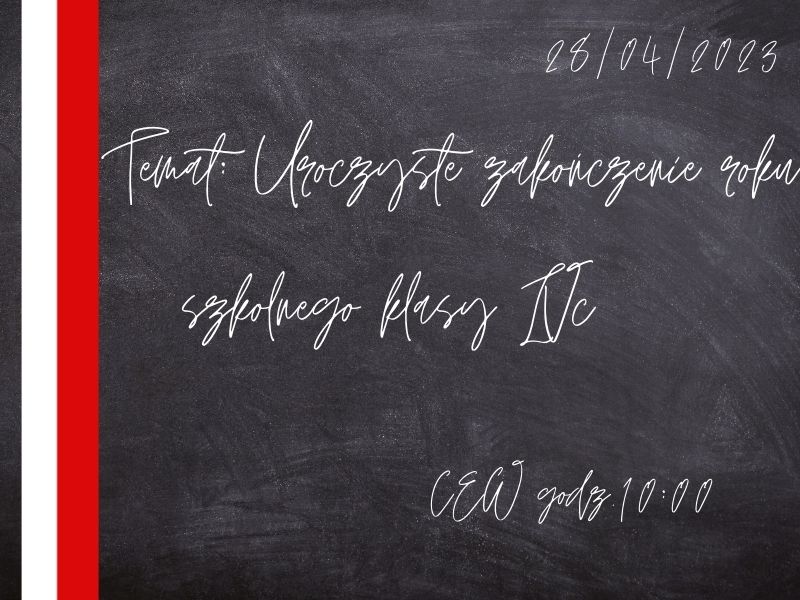 28/04/2023
Temat: Uroczyste zakończenie roku
szkolnego klasy IVc
CEW godz.10:00